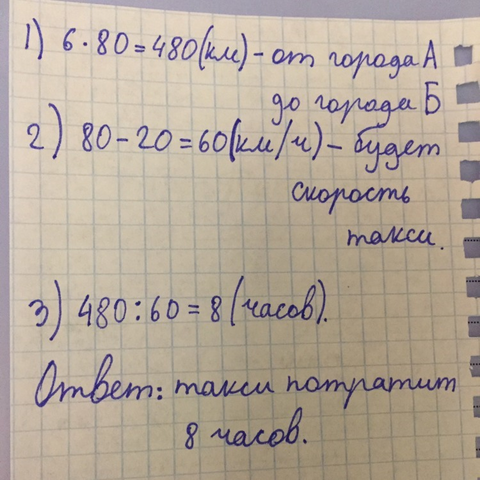 1) 6·80=480(км)-от города А
до города Б
2) 80-20=60(км/ч)-будет
скорость
такси.
3) 480:60=8(часов).
Ответ: такси потратит
8 часов.